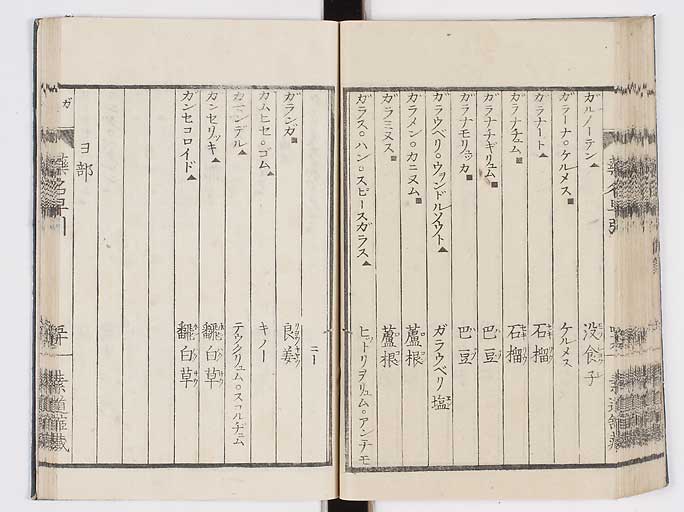 ガルノーテン▲ 没食子
ガラーナ。ケルメス■ ケルメス
ガラナート▲ 石榴
ガラナチュム■ 石榴
ガラナチギリュム■ 巴豆
ガラナモリュッカ■ 巴豆
ガラウベリ。ウヲンドルソウト▲ ガラウベリ塩
ガラメン。カニヌム■ 蘆根
ガラミヌス■ 蘆根
ガラス。ハン。スピースガラス▲ ヒットリヲリュム。アンチモ
ニー
ガランガ■ 良姜
カムヒセ。ゴム▲ キノー
カマンデル▲ テウクリュム。スコルヂュム
カンセリッキ▲ 飜白草
カンセコロイド▲ 飜白草
ヨ部
ガ